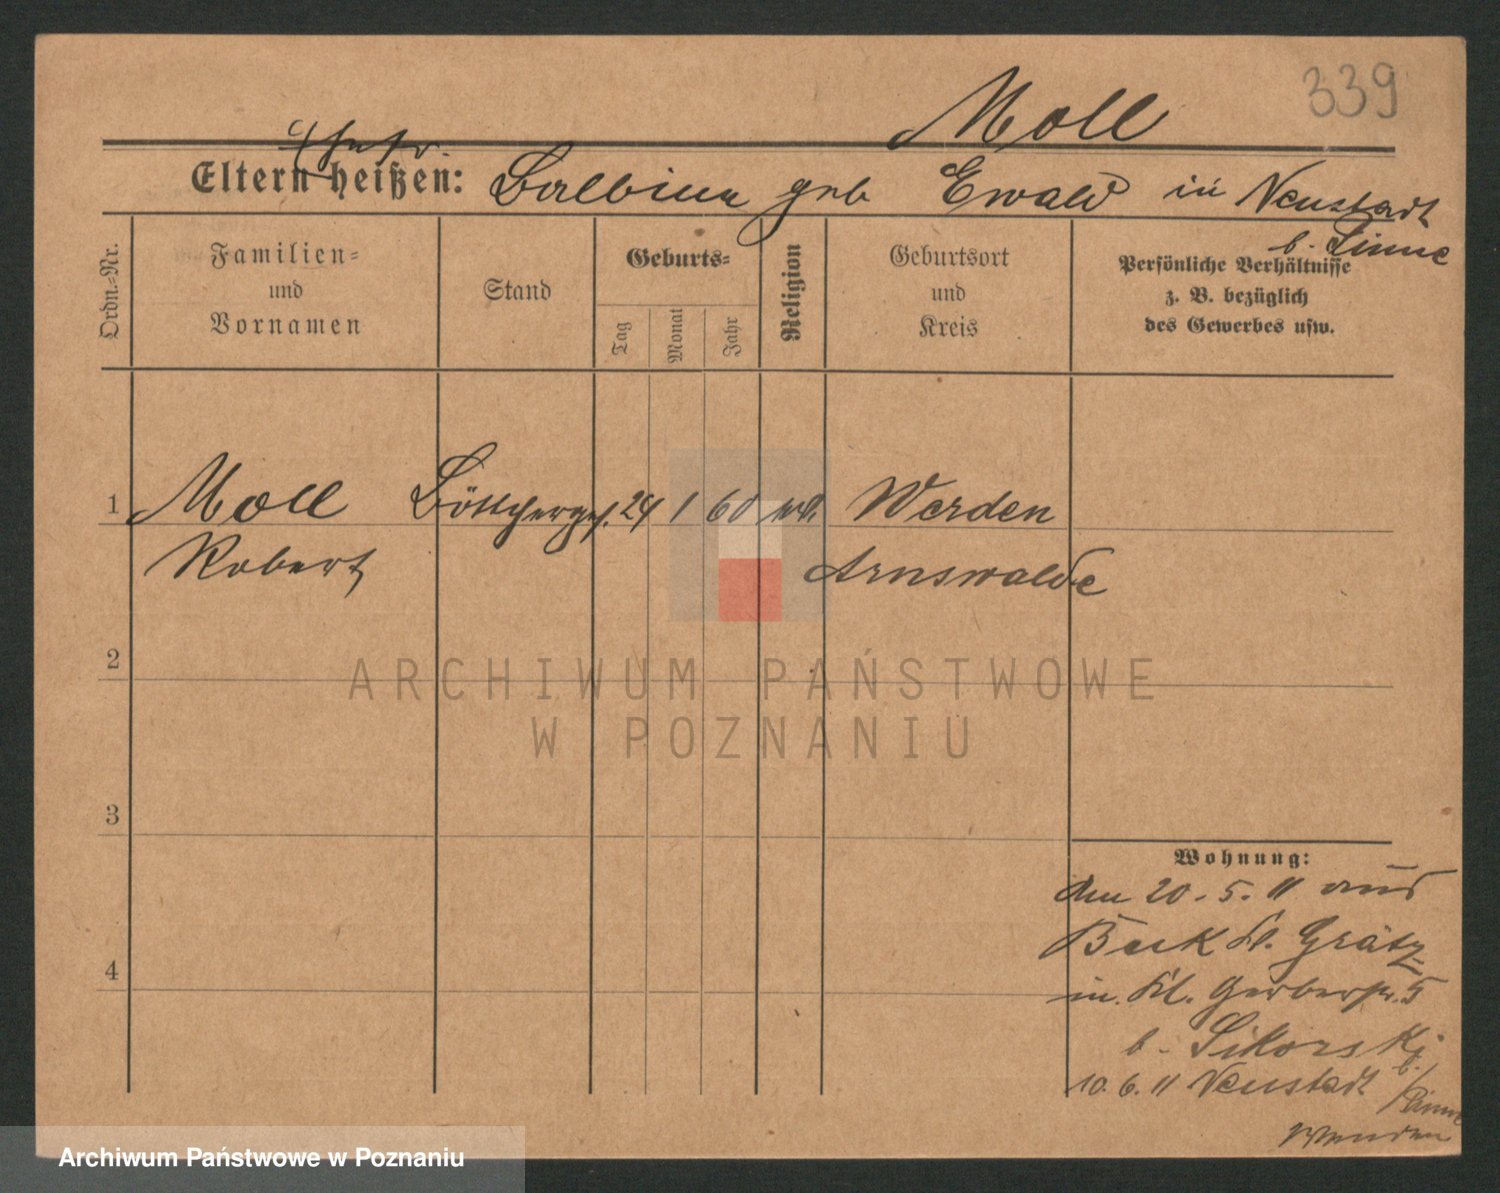 339
Moll
Ehefr.
Eltern heißen: Balbina geb Ewald in Neustadt
b. Pinne
Ordn.=Nr.
Familien=
und
Vornamen
Stand
Geburts=
Tag
Monat
Jahr
Religion
Geburtsort
und
Kreis
Persönliche Verhältnisse
z. B. bezüglich
des Gewerbes usw.
1 Moll Böttcherges. 24 1 60 Werden
Robert Arnswalde
2
ARCHIWUM PAŃSTWOWE
W POZNANIU
3
Wohnung:
den 20. 5. 11 aus
Buk Kr. Grätz
in Kl. Gerberstr. 5
b. Sikorski
10. 6. 11 Neustadt b.
Pinne
Wenden
4
Archiwum Państwowe w Poznaniu